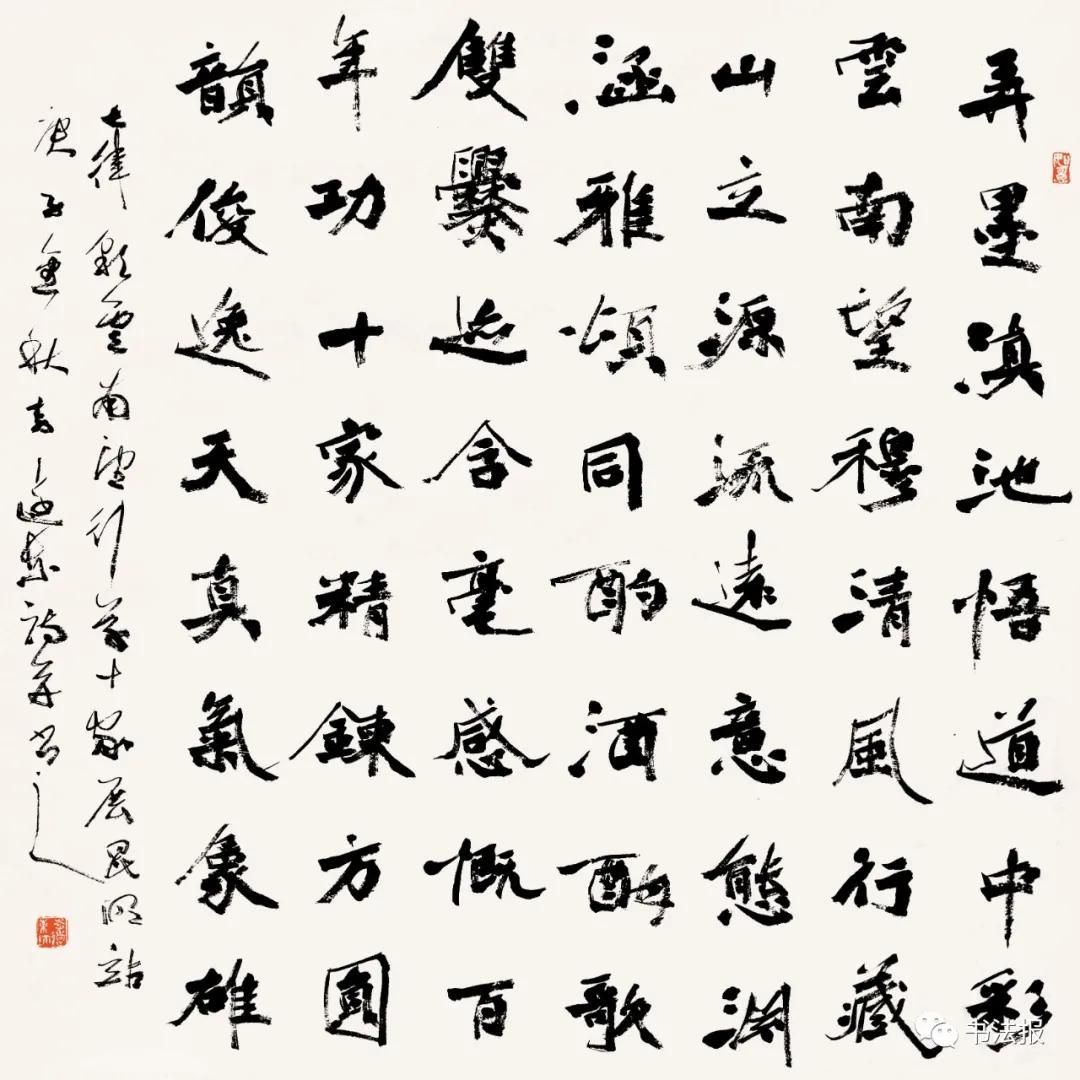 弄墨滇池悟道中彩
雲南望穆清風行藏
山立源流遠意態淵
涵雅頌同酌酒酣歌
雙爨迹含毫感慨百
年功十家精鍊方圓
韻俊逸天真氣象雄
七律 彩雲南望行草十家展昆明站
庚子金秋 詩并書之
书法报